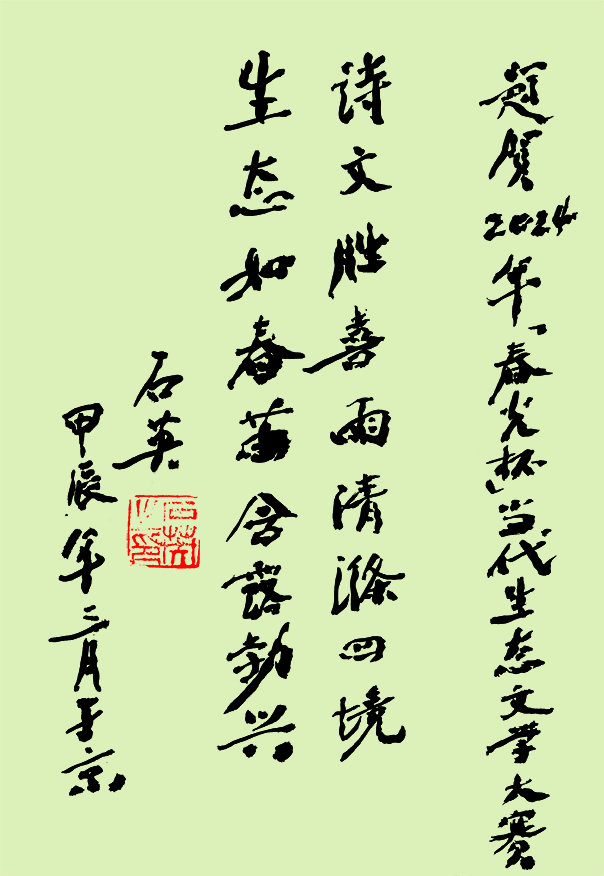 题贺2024年「春光杯」当代生态文学大赛
诗文胜喜雨清涤四境
生态如春含露勃兴
石英
石英之印
甲辰年三月于京